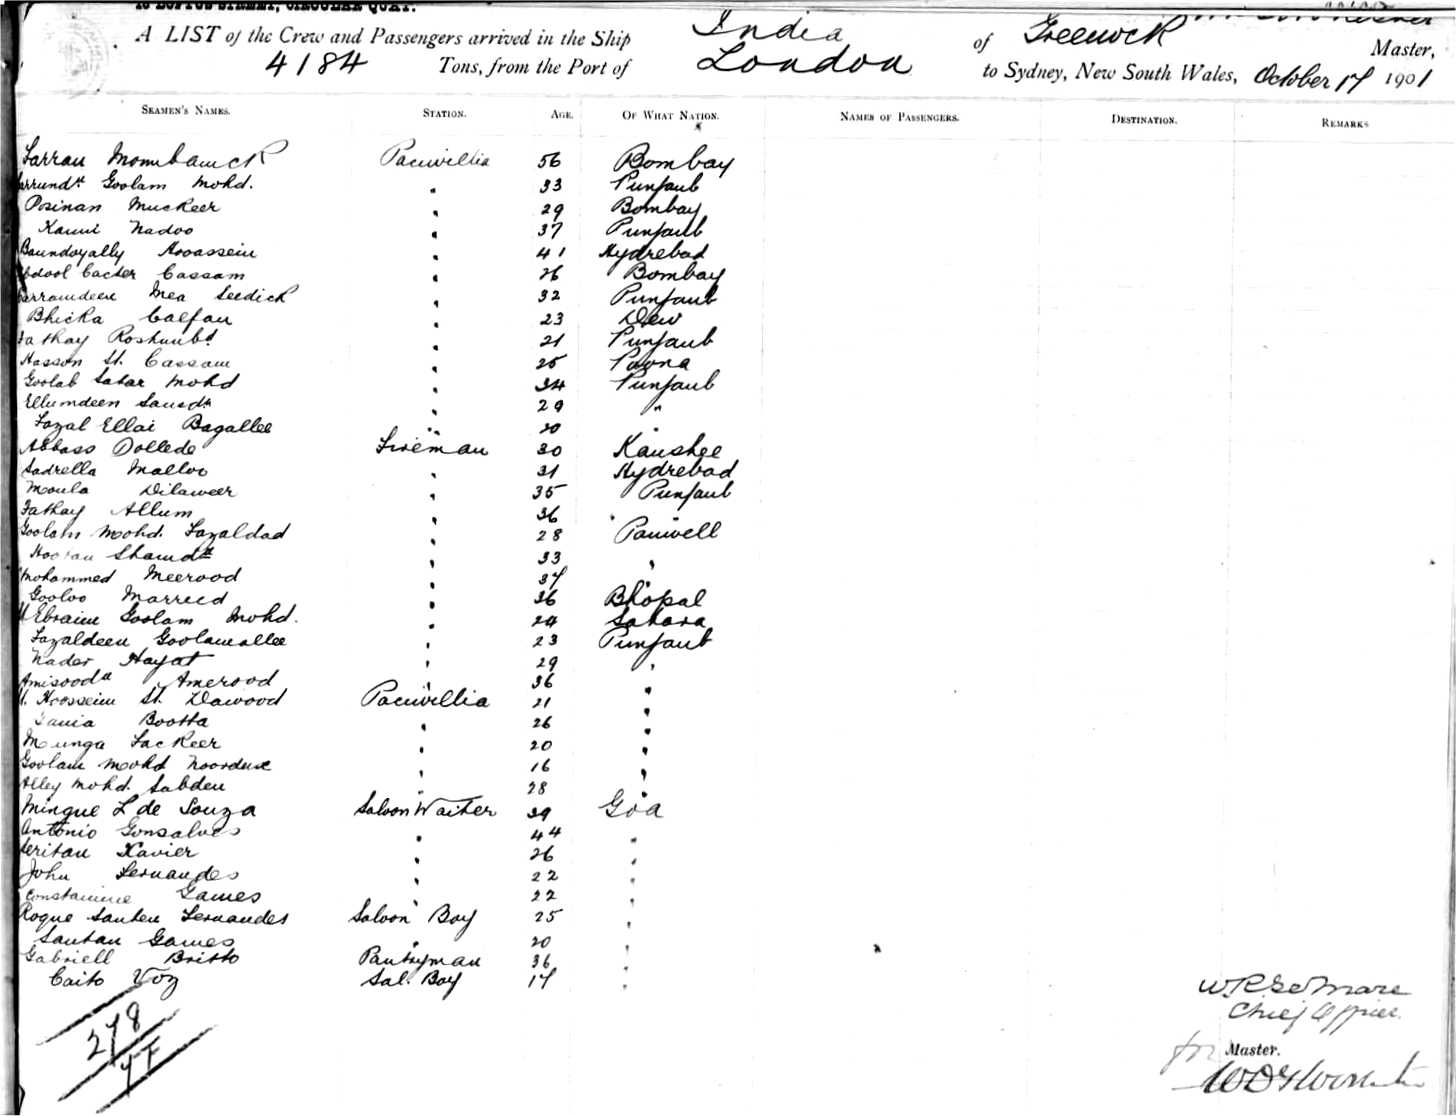 10 LOFTUS STREET, CIRCULAR QUAY.
A LIST of the Crew and Passengers arrived in the Ship India of Greenock Master,
4184 Tons, from the Port of London to Sydney, New South Wales, October 17 1901
SEAMEN'S NAMES. STATION. AGE. OF WHAT NATION. NAMES OF PASSENGERS. DESTINATION. REMARKS
56 Bombay
Goolam Mohd. " 33 Punjaub
Posinan Muckeer " 29 Bombay
Nadoo " 37 Punjaub
Boundoyally Hooassein " 41 Hydrebad
Cassam " 26 Bombay
Mea Seedick " 32 Punjaub
Bhicka Calfan " 23 Dew
Fathay " 21 Punjaub
Hasson St. Cassam " 25 Poona
Goolab Satar Mohd " 34 Punjaub
Ellumdeen " 29 "
Fazal Ellai Bagallee " 20 "
Abbass Dollede Fireman 30 Kaushee
Sadrella Malloo " 31 Hydrebad
Moula Dilaweer " 35 Punjaub
Fathay Allum " 36 "
Goolam Mohd. Fazaldad " 28 Panwell
" 33 "
Mohammed Meerood " 37 "
Gooloo " 36 Bhopal
Ebraim Goolam Mohd. " 24 Sahara
Fazaldeen Goolamallee " 23 Punjaub
Nader Hayat " 29 "
Amerood " 36 "
Hoosseim St. Dawood 21 "
Bootta " 26 "
Munga Fackeer " 20 "
Goolam Mohd " 16 "
Alley Mohd. Sabden " 28 "
Mingue L de Souza Saloon Waiter 39 Goa
Antonio Gonsalves " 44 "
Xavier " 26 "
John Fernandes " 22 "
Constantine Games " 22 "
Roque Santen Fernandes Saloon Boy 25 "
Santan Games " 20 "
Gabriell Britto Pantryman 36 "
Caito Voz Sal. Boy 17 "
278
Chief Officer.
for Master.